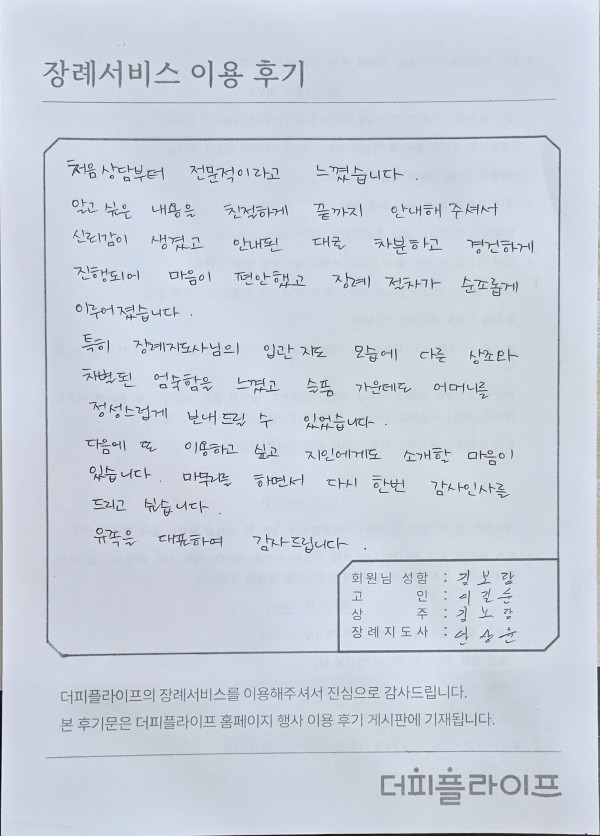 장례서비스 이용 후기
처음 상담부터 전문적이라고 느꼈습니다.
알고 싶은 내용을 친절하게 끝까지 안내해 주셔서
신뢰감이 생겼고 안내된 대로 차분하고 경건하게
진행되어 마음이 편안했고 장례 절차가 순조롭게
이루어졌습니다.
특히 장례지도사님의 입관지도 모습에 다른 상조와
차별된 엄숙함을 느꼈고 슬픔 가운데도 어머니를
정성스럽게 보내드릴 수 있었습니다.
다음에 또 이용하고 싶고 지인에게도 소개할 마음이
있습니다. 마무리를 하면서 다시 한번 감사인사를
드리고 싶습니다.
유족을 대표하여 감사드립니다.
회원님 성함 : 김보람
고 인 : 이길순
상 주 :
장례지도사 : 안상윤
더피플라이프의 장례서비스를 이용해주셔서 진심으로 감사드립니다.
본 후기문은 더피플라이프 홈페이지 행사 이용 후기 게시판에 기재됩니다.
더피플라이프